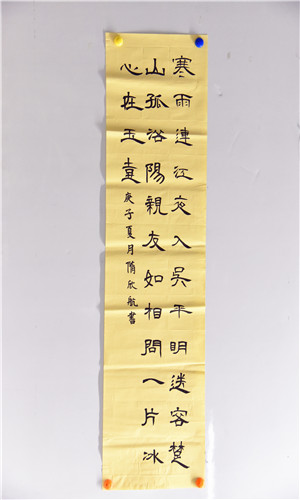 寒雨連江夜入吳平明送客楚
山孤洛陽親友如相問一片冰
心在玉壺
庚子夏月隋欣航書